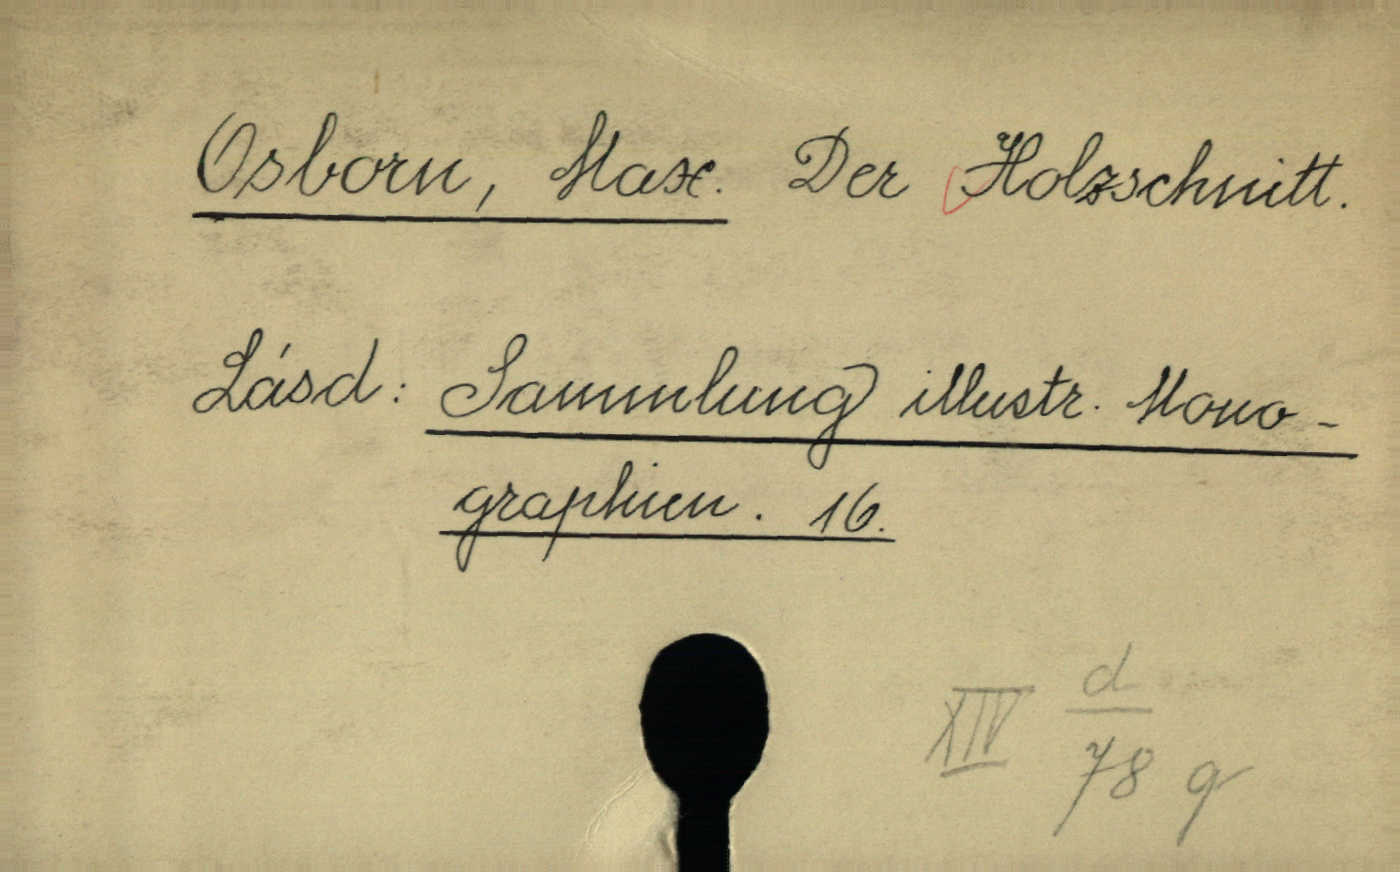 Osborn, Max. Der Holzschnitt.
Lásd: Sammlung illustr. Mono-
graphien. 16.
XIV d
78 g